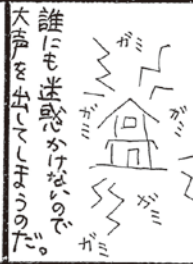 誰にも迷惑かけないので
大声を出してしまうのだ。
ガミ
ガミ
ガミ
ガミ
ガミ
ガミ